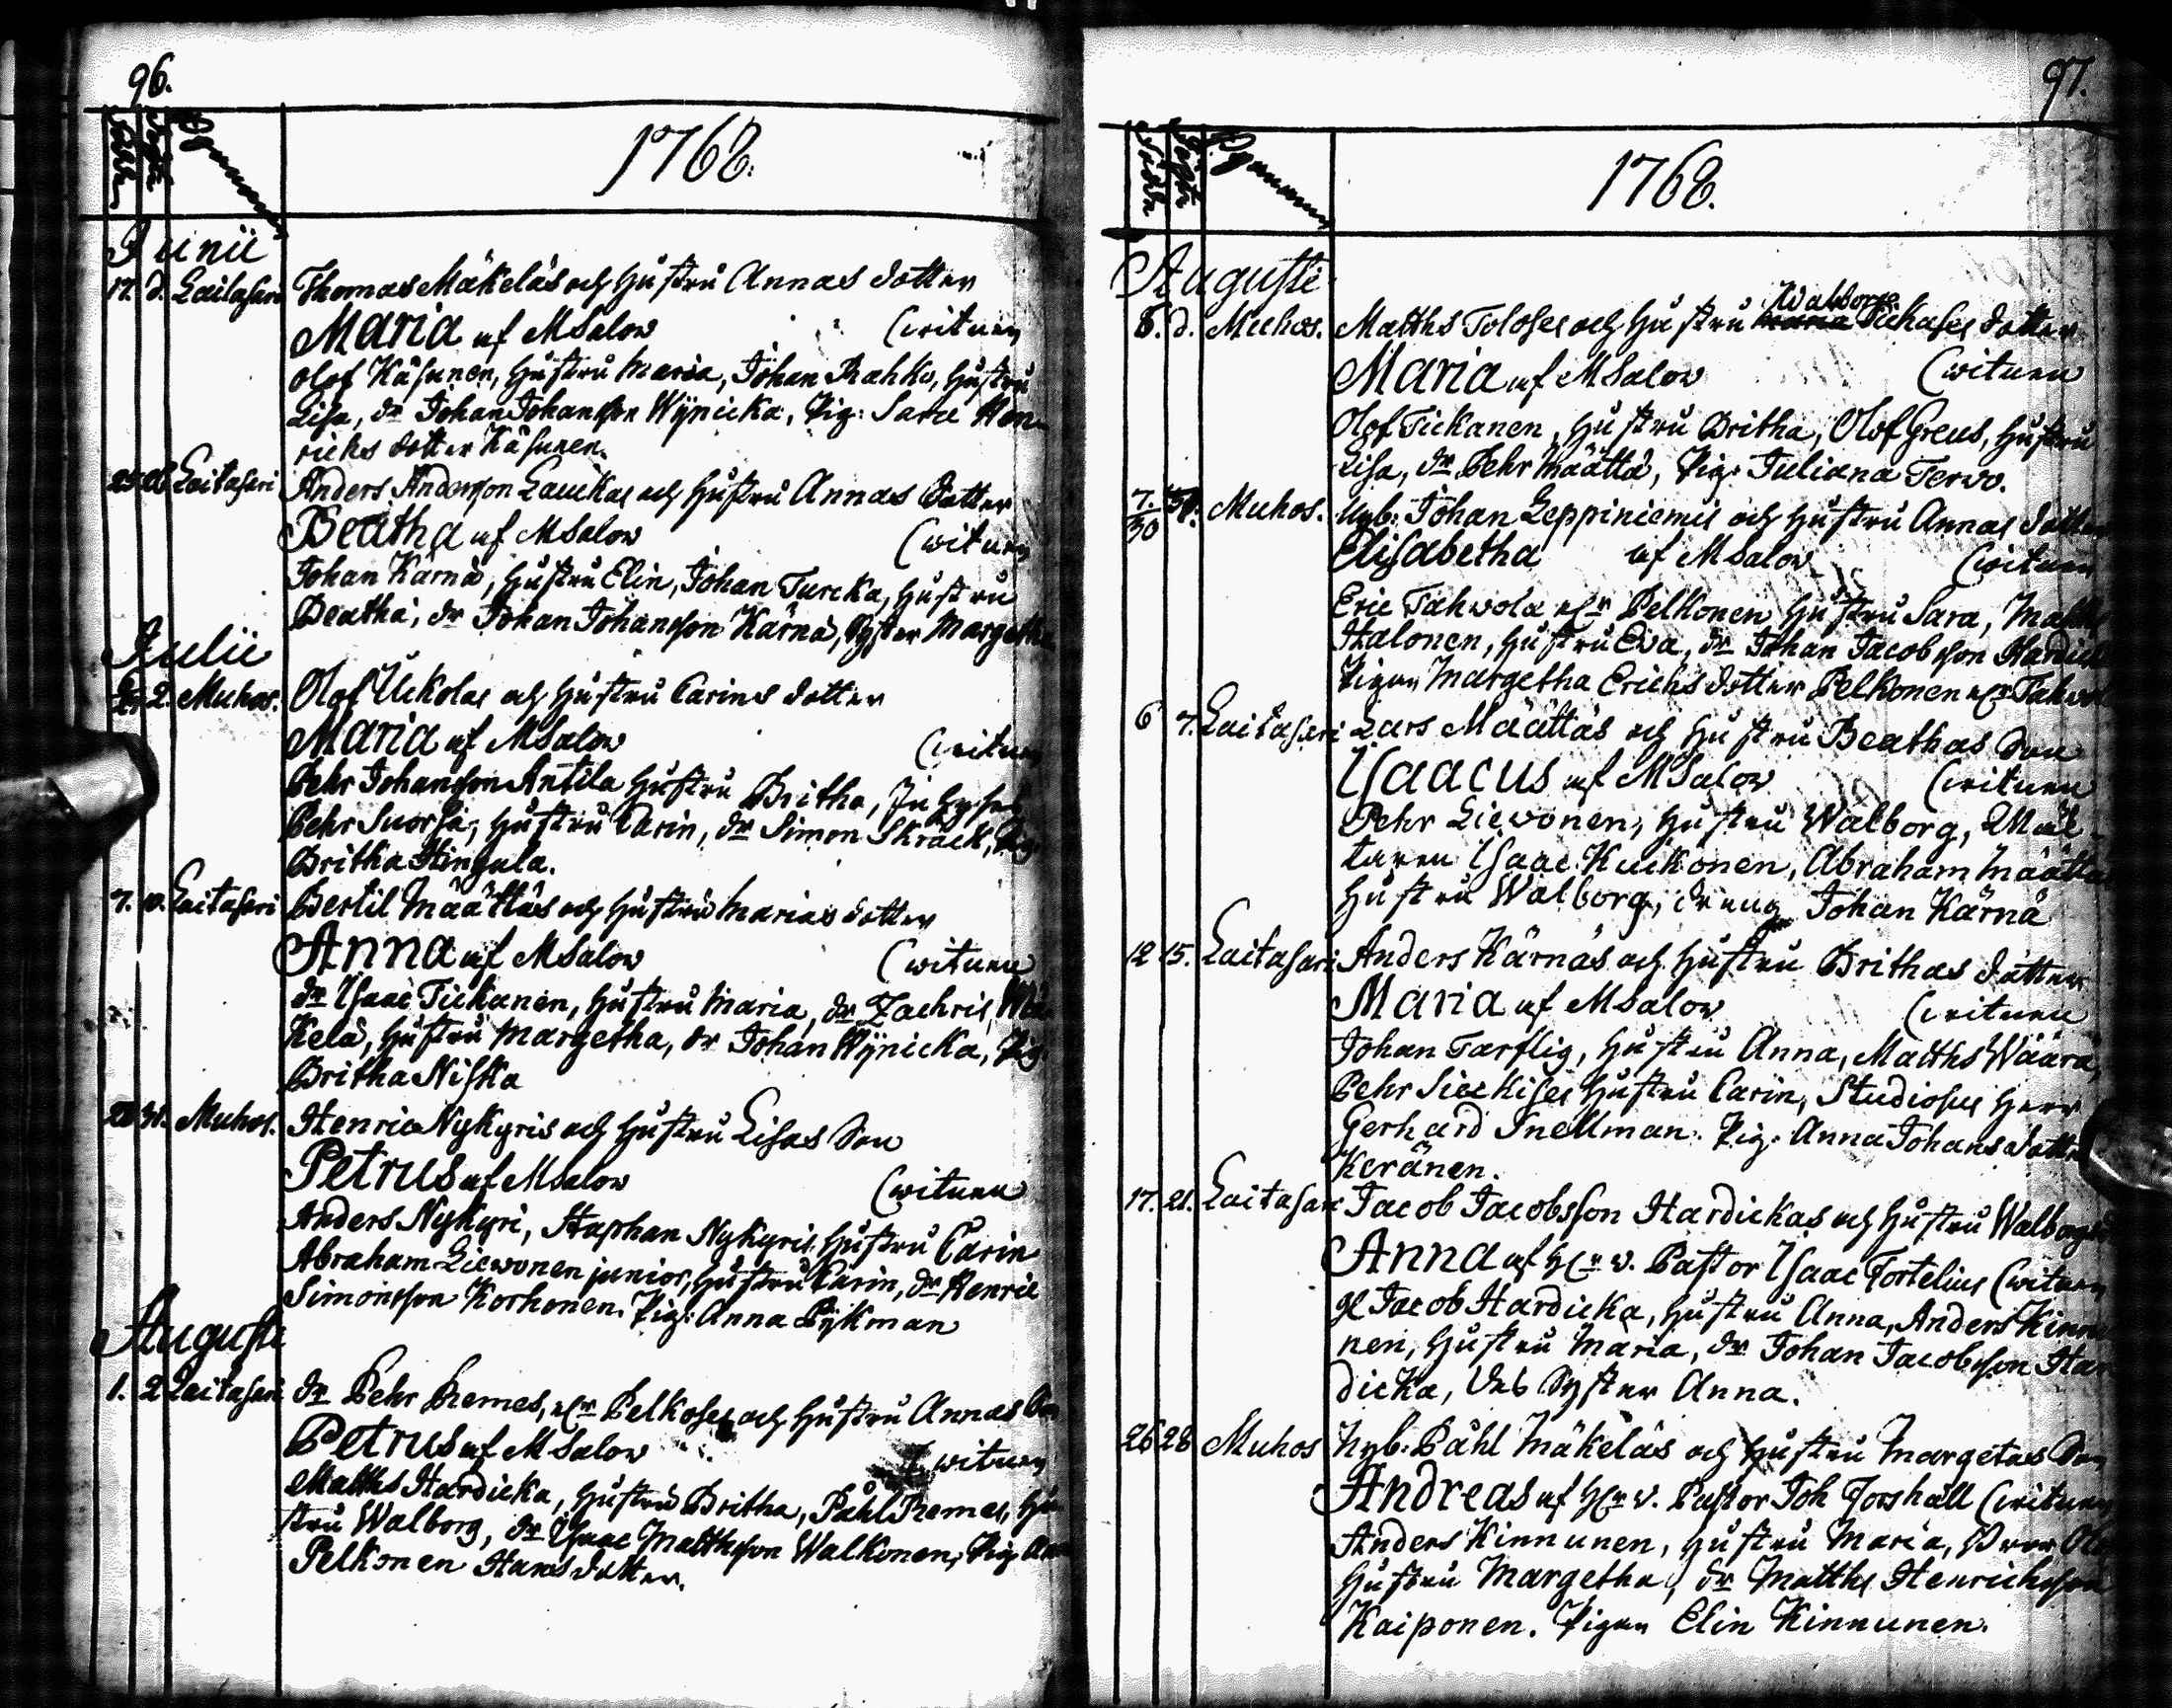 96.
Född
Döpt
Bynamn
1768.
Junii
17. d. Laitasari Thomas Mäkeläs och hustru Annas dotter
Maria af MSalov (vitnen
Olof Käsunen, hustru Maria, Johan Rahko, hustru
Lisa, dr Johan Johansson Wynicka, Pig: Sara Hen-
richs dotter Käsunen.
Laitasari Anders Andersson Lauckas och hustru Annas dotter
Beatha af MSalov (vitnen
Johan Kärnä, hustru Elin, Johan Turcka, hustru
Beatha, dr Johan Johansson Kärnä, Syster Margetha
Julii
2. Muhos. Olof Uckolas och hustru Carins dotter
Maria af MSalov (vitnen
Pehr Johansson Antila hustru Britha, Inhyses
Pehr Suorsa, hustru Carin, dr Simon Skräck, Pig
Britha Hingula.
7. Laitasari Bertil Määttäs och hustru Marias dotter
Anna af MSalov (vitnen
dr Isaac Tickanen, hustru Maria, dr Zachris Mä-
kelä, hustru Margetha, dr Johan Wynicka, Pig:
Britha Niska
31. Muhos. Henric Nykyris och hustru Lisas Son
Petrus af MSalov (vitnen
Anders Nykyri, Staphan Nykyris hustru Carin
Abraham Liewonen junior, hustru Carin, dr Henric
Simonsson Korhonen. Pig: Anna Pykman
Augusti
1. 2 Laitasari dr Pehr Remes, Pelkoses och hustru Annas
Petrus af MSalov (vitnen
Matths Hardicka, hustru Britha, Påhl Remes, hu-
stru Walborg, dr Isaac Matthsson Walkonen, Pig
Pelkonen Hans dotter.
97.
Född
Döpt
Bynamn
1768.
Augusti
d. Muhos. Matths Toloses och hustru Walborgs Tickases dotter
Maria af MSalov (vitnen
Olof Tickanen, hustru Britha, Olof Greus, hustru
Lisa, dr Pehr Määttä, Pig: Juliana Tervo.
7/30 Muhos. Nyb: Johan Leppiniemis och hustru Annas dotter
Elisabetha af MSalov (vitnen
Eric Tahvola Pelkonen, hustru Sara, Matths
Halonen, hustru Eva, dr Johan Jacobsson Hardick
Pigan Margetha Erichs dotter Pelkonen
6 7. Laitasari Lars Määttäs och hustru Beathas Son
Isaacus af MSalov (vitnen
Pehr Liewonen, hustru Walborg, Mål-
taren Isaac Kuckonen, Abraham Määttä
hustru Walborg, dräng Johan Kärnä
12 15. Laitasari Anders Kärnäs och hustru Brithas dotter
Maria af MSalov (vitnen
Johan Tarflig, hustru Anna, Matths Wäärä,
Pehr Sieckises hustru Carin, Studiosus Herr
Gerhard Snellman. Pig: Anna Johans dotter
Keränen.
17. 21. Laitasari Jacob Jacobsson Hardickas och hustru Walborgs
Anna af v. Pastor Isaac Tortelius (vitnen
gl Jacob Hardicka, hustru Anna, Anders Kinnu-
nen, hustru Maria, dr Johan Jacobsson Har-
dicka, des Syster Anna.
26 28 Muhos Nyb: Påhl Mäkeläs och hustru Margetas Son
Andreas af v. Pastor Joh Forshäll (vitnen
Anders Kinnunen, hustru Maria,
hustru Margetha, dr Matths Henrichsson
Kaiponen. Pigan Elin Kinnunen.